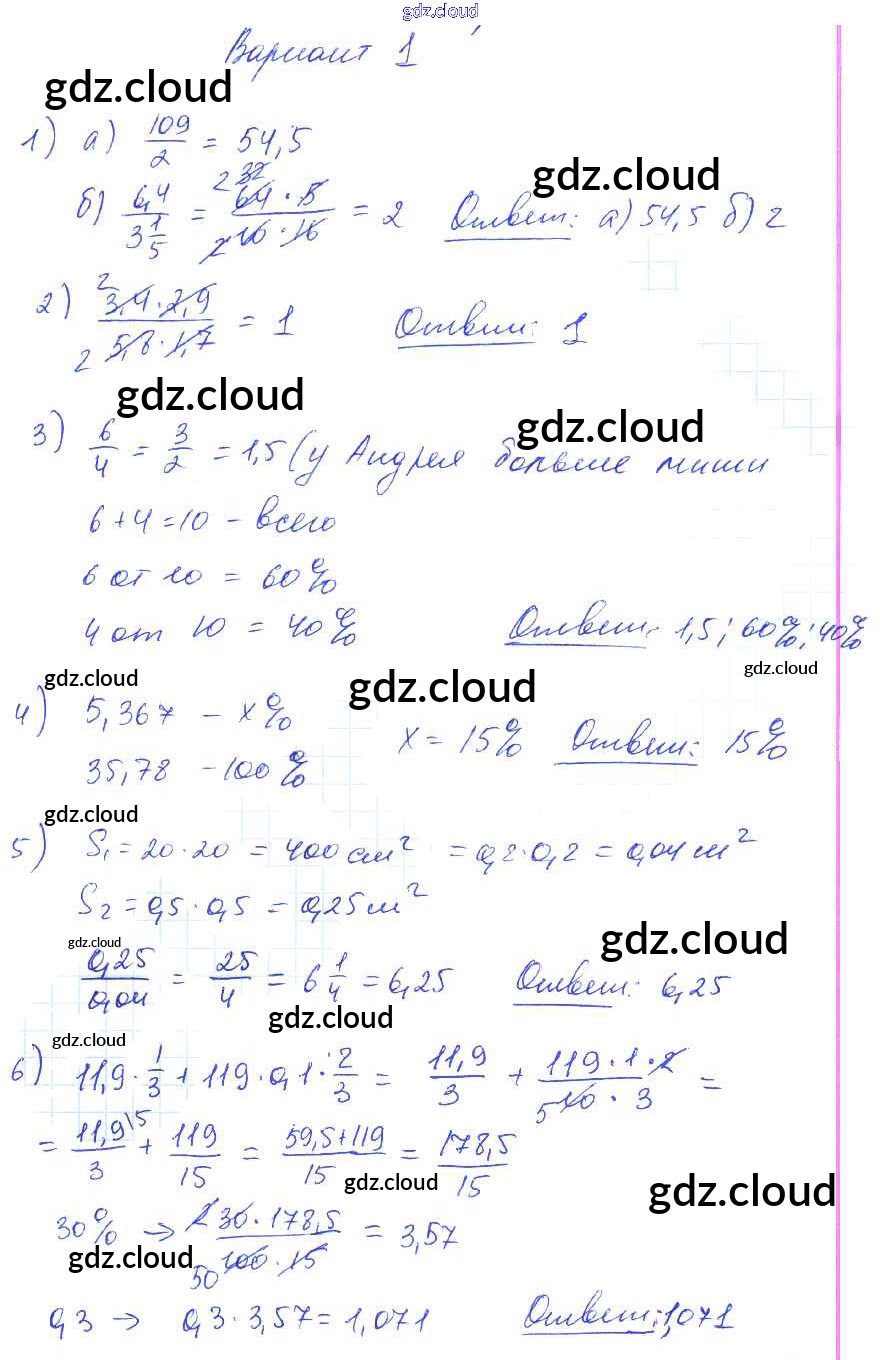 gdz.cloud
Вариант 1
gdz.cloud
1) а) 109/2 = 54,5
gdz.cloud
б) 6,4 / 3 1/5 = 2 32 64 · 5 / 2 10 · 16 = 2 Ответ: а) 54,5 б) 2
2) 2 3,4 · 2,9 / 2 5,8 · 1,7 = 1 Ответ: 1
gdz.cloud gdz.cloud
3) 6/4 = 3/2 = 1,5 (у Андрея больше миши
6 + 4 = 10 - всего
6 от 10 = 60%
4 от 10 = 40% Ответ: 1,5; 60%; 40%
gdz.cloud gdz.cloud gdz.cloud
4) 5,367 - x%
35,78 - 100% x = 15% Ответ: 15%
gdz.cloud
5) S₁ = 20 · 20 = 400 см² = 0,2 · 0,2 = 0,04 м²
S₂ = 0,5 · 0,5 = 0,25 м²
gdz.cloud gdz.cloud
0,25/0,04 = 25/4 = 6 1/4 = 6,25 Ответ: 6,25
gdz.cloud
gdz.cloud
6) 11,9 · 1/3 + 119 · 0,1 · 2/3 = 11,9/3 + 119 · 1 · 2 / 5 10 · 3 =
= 11,9\5 / 3 + 119/15 = 59,5+119 / 15 = 178,5/15
gdz.cloud gdz.cloud
30% → 2 30 · 178,5 / 50 100 · 15 = 3,57
gdz.cloud
0,3 → 0,3 · 3,57 = 1,071 Ответ: 1,071